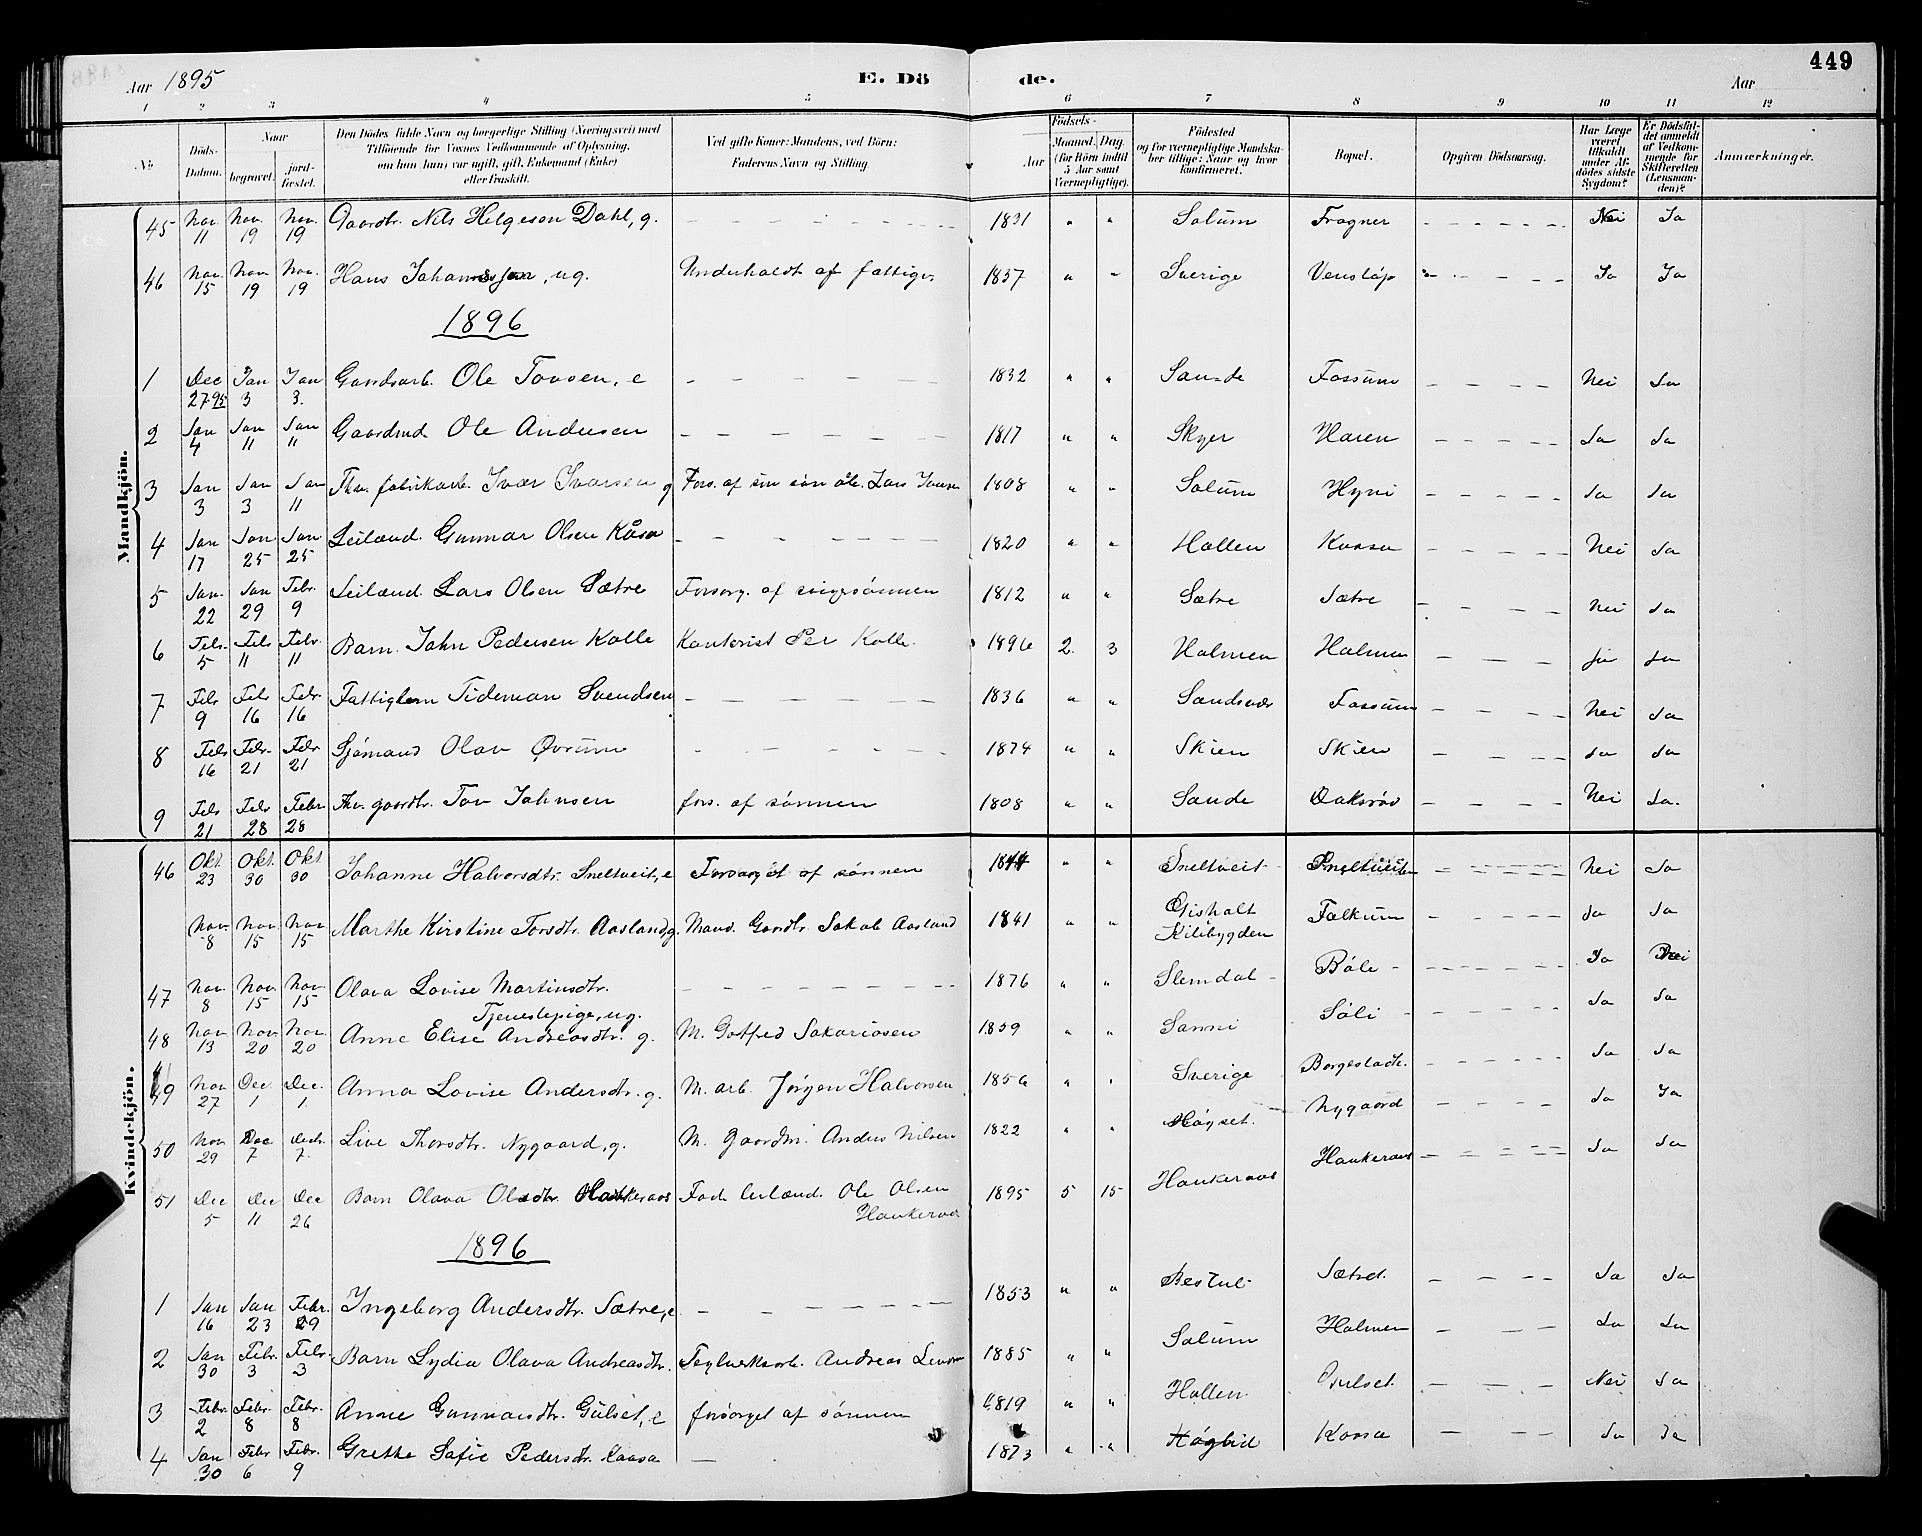 449
Aar 1895 E. Dö de. Aar
1 2 3 4 5 6 7 8 9 10 11 12
No Döds-Datum. Naar begravet. jordfæstet. Den Dödes fulde Navn og borgerlige Stilling (Næringsvei) med Tilföiende for Voxnes Vedkommende af Oplysning, om han (hun) var ugift, gift, Enkemand (Enke) eller fraskilt. Ved gifte Koner: Mandens, ved Börn: Faderens Navn og Stilling. Födsels- Aar Maaned. Dag. (for Börn indtil 5 Aar samt Værnepligtige). Födested og for værnepligtige Mandskaber tillige: Naar og hvor konfirmeret. Bopæl. Opgiven Dödsaarsag. Har Læge været tilkaldt under Afdödes sidste Sygdom? Er Dödsfaldet anmeldt af Vedkommende for Skifteretten (Lensmanden)? Anmærkninger.
Mandkjön.
45 Nov. 11 Nov. 19 Nov. 19 Gaardbr. Nils Helgesen Dahl, g. 1831 " " Solum Frogner Nei Ja
46 Nov. 15 Nov. 19 Nov. 19 Hans Johannesen, ug. Underholdt af fattigv. 1837 " " Sverige Venstöp Ja Ja
1896
1 Dec 27-95 Jan 3 Jan 3. Ole Tovsen, e 1832 " " Sande Fossum Nei Ja
2 Jan 4 Jan 11 Jan 11 Gaardmd Ole Andersen 1817 " " Skyer Haren Ja Ja
3 Jan 3 Jan 3 Jan 11 Fhv. fabrikarb. Ivar Ivarsen g Fors. af sin søn Lars Ivarsen 1808 " " Solum Hyni Ja Ja
4 Jan 17 Jan 25 Jan 25 Leilænd. Gunnar Olsen Kåsa 1820 " " Hollen Kaasa Nei Ja
5 Jan. 22 Jan 29 Febr. 9 Leilænd. Lars Olsen Sætre Forsørg. af svigersønnen 1812 " " Sætre Sætre Nei Ja
6 Febr. 5 Feb 11 Febr. 11 Barn. John Pedersen Kolle Kontorist Per Kolle. 1896 2. 3 Holmen Holmen Ja Ja
7 Febr 9 Febr 16 Febr 16 Fattiglem Tideman Svendsen 1836 " " Sandsvær Fossum Nei Ja
8 Febr 16 Febr. 21 Febr 21 Sjømand Olav Øvrum 1874 " " Skien Skien Ja Ja
9 Feb 21 Febr 28 Febr 28 Fhv. gaardbr. Tov Johnsen fors. af sønnen 1808 " " Sande Nei Ja.
Kvindekjön.
46 Okt. 23 Okt. 30 Okt 30 Johanne Halvorsdtr. Sneltveit, e Forsørget af sønnen " " Sneltveit Sneltveiten Nei Ja
Nov. 8 Nov. 15 Nov 15 Marthe Kirstine Torsdtr. Aasland g. Mand. Gaardbr. Jakob Aasland 1841 " " Gisholt Kilebygden Falkum Ja Ja
47 Nov. 8 Nov. 15 Nov. 15 Olava Lovise Martinsdtr. Tjenestepige, ug. 1876 " " Slemdal Bøle Ja Nei
48 Nov. 13 Nov. 20 Nov. 20 Anne Elise Andreasdtr. g. M. Gotfred Sakariasen 1859 " " Sanni Søli Ja Ja
49 Nov 27 Dec. 1 Dec. 1. Anna Lovise Andersdtr. g. M. arb. Jørgen Halvorsen 1856 " " Sverige Borgestadh. Ja Ja
50 Nov. 29 Dec 7 Decb. 7. Live Thorsdtr. Nygaard, g. M. gaardm. Anders Nilsen 1822 " " Høgset. Nygaard Ja Ja
51 Dec 5 Dec 11 Dec 26 Barn Olava Olsdtr. Haukeraas Fad. leilænd. Ole Olsen Haukeraas 1895 5 15 Haukeraas Haukeraas Ja Ja
1896
1 Jan 16 Jan 23 Febr. 29 Ingeborg Andersdtr. Sætre, e 1853 " " Bestul Sætret Ja Ja
2 Jan 30 Febr. 3 Febr. 3 Barn Lydia Olava Andreasdtr. Teglverksarb. Andreas 1885 " " Solum Holmen Ja Ja
3 Febr. 2 Febr. 8 Febr. 8 Anne Gunnarsdtr. Gulset, e forsørget af sønnen 1819 " " Hollen Gulset Nei Ja
4 Jan 30 Febr 6 Febr. 9 Grethe Sofie Pedersdtr. Kaasa 1873 " " Kaasa Ja Ja